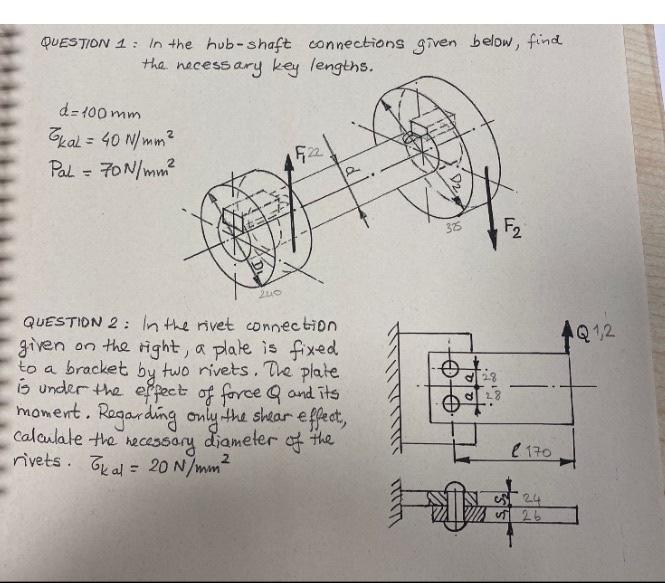 QUESTION 1 : In the hub-shaft connections given below, find
the necessary key lengths.
d=100 mm
τkal = 40 N/mm²
Pal = 70 N/mm²
F₁ 22
d
D₁
240
D₂
325
F₂
QUESTION 2 : In the rivet connection
given on the right, a plate is fixed
to a bracket by two rivets. The plate
is under the effect of force Q and its
moment. Regarding only the shear effect,
calculate the necessary diameter of the
rivets. τkal = 20 N/mm²
Q 1,2
a 28
a 28
l 170
S₂ 24
S₁ 26